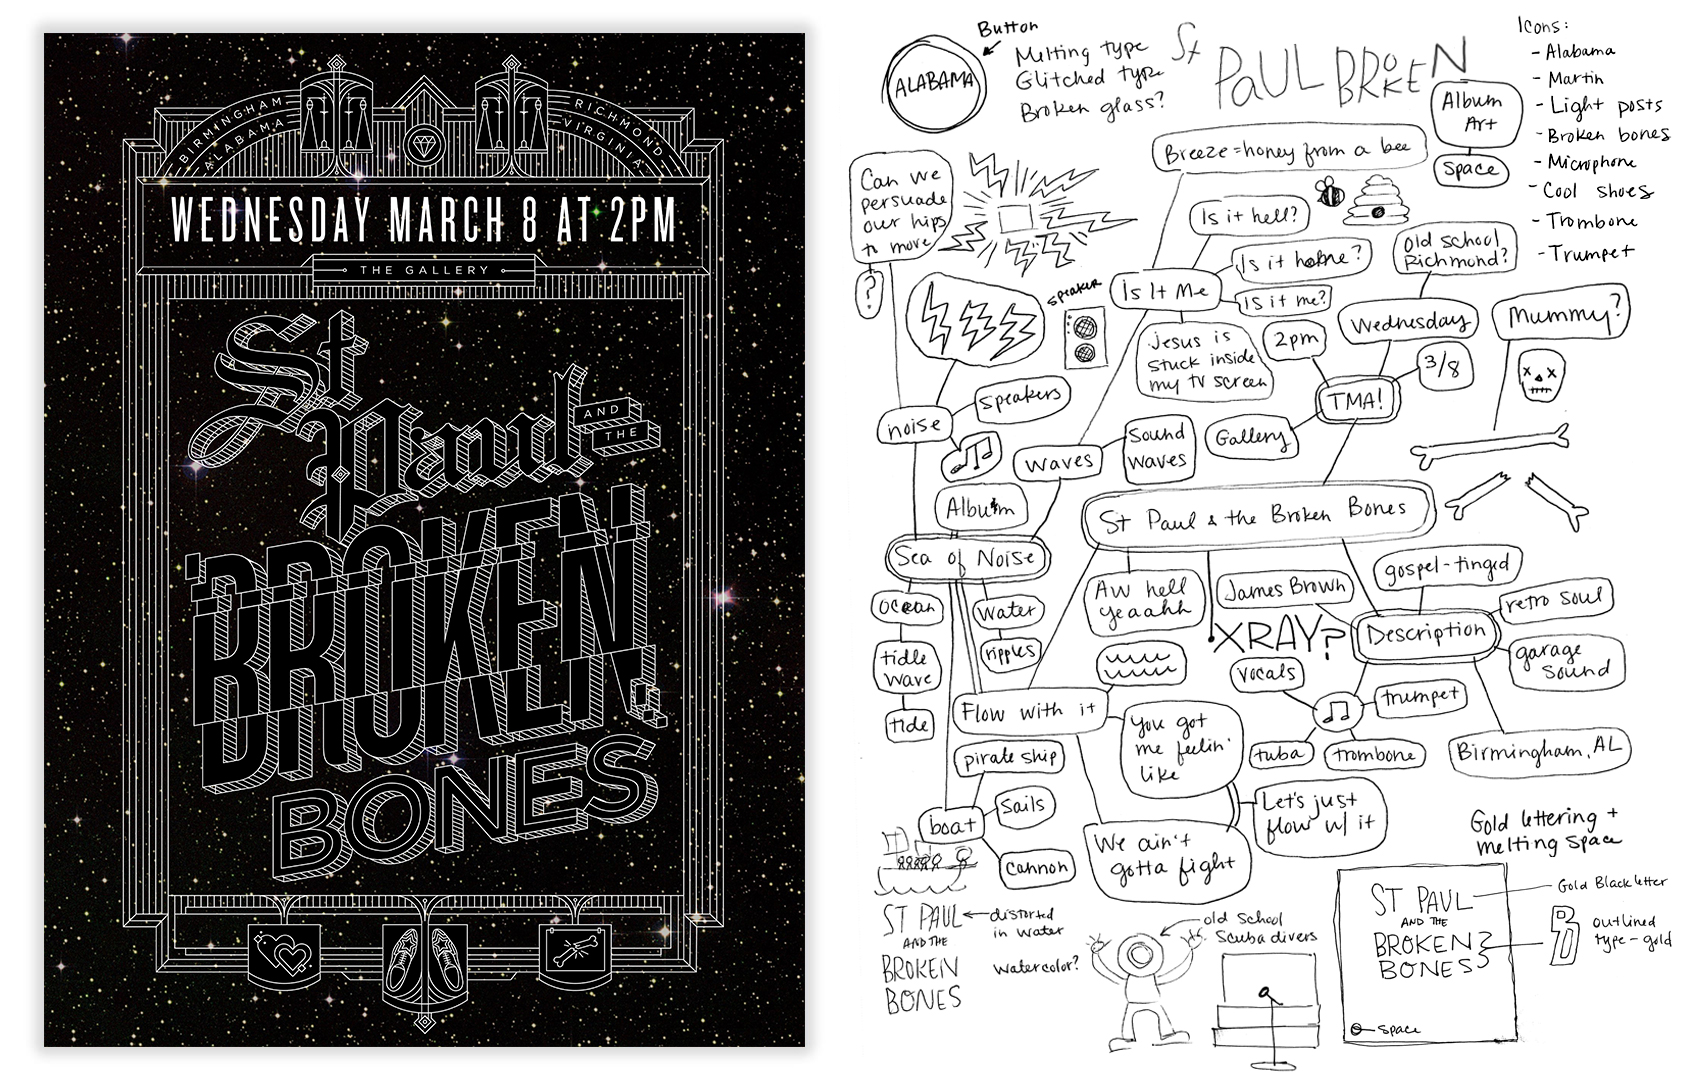 BIRMINGHAM
ALABAMA
RICHMOND
VIRGINIA
WEDNESDAY MARCH 8 AT 2PM
THE GALLERY
St
Paul
AND
THE
BROKEN
BONES
Button
ALABAMA
Melting type
Glitched type
Broken glass?
St
PAUL BROKEN
Icons:
- Alabama
- Martin
- Light posts
- Broken bones
- Microphone
- Cool shoes
- Trombone
- Trumpet
Album
Art
Space
Breeze = honey from a bee
Can we
persuade
our hips
to move
?
Is it hell?
Is it home?
Is It Me
Is it me?
Old school
Richmond?
speaker
Jesus is
stuck inside
my TV screen
2pm
Wednesday
3/8
Mummy?
TMA!
Gallery
speakers
noise
waves
Sound
waves
Album
St Paul & the Broken Bones
Sea of Noise
ocean
tidle
wave
tide
water
ripples
Aw hell
yeaahh
James Brown
gospel-tinged
retro soul
XRAY?
Description
garage
sound
vocals
trumpet
tuba
trombone
Birmingham, AL
Flow with it
You got
me feelin'
like
pirate ship
Sails
boat
cannon
We ain't
gotta fight
Let's just
flow w/ it
Gold lettering +
melting space
ST PAUL
AND THE
BROKEN
BONES
distorted
in water
watercolor?
old school
Scuba divers
ST PAUL
AND THE
BROKEN
BONES
Gold Blackletter
B
outlined
type - gold
space